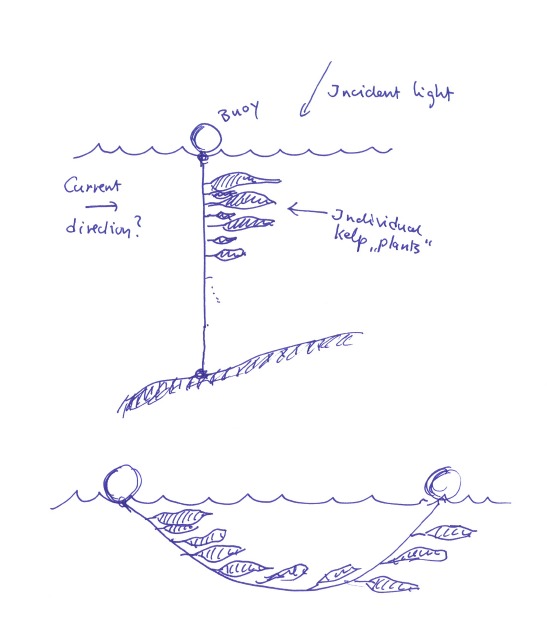 Incident light
Buoy
Current
direction?
Individual
kelp „plants“